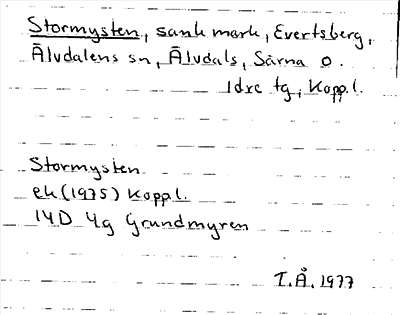 Stormysten, sank mark, Evertsberg,
Älvdalens sn, Älvdals, Särna o.
Idre tg, Koppl.
Stormysten
ek (1975) Koppl.
14D 4g Grundmyren
T.Å. 1977